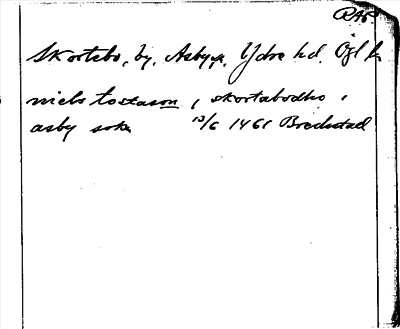 RAP
Skortebo, by, Asby sn, Ydre hd. Ögl l.
niels tostason, i, skortabodho, i
asby sokn 13/6 1461 Bredestad